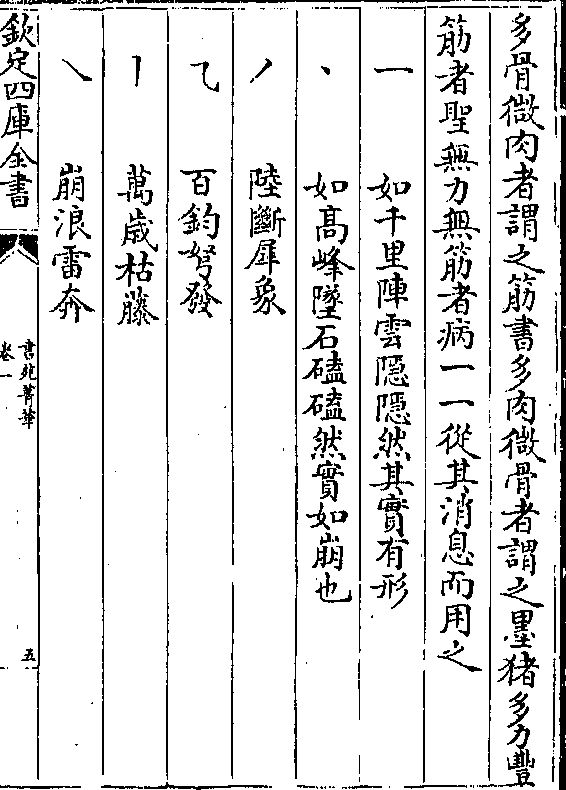 多骨微肉者謂之筋書多肉微骨者謂之墨猪多力豐
筋者聖無力無筋者病一一從其消息而用之
一 如千里陣雲隱隱然其實有形
丶 如高峰墜石磕磕然實如崩也
丿 陸斷犀象
乁 百鈞弩發
丨 萬歳枯藤
乀 崩浪雷奔
欽定四庫全書
書苑菁華
卷一
五